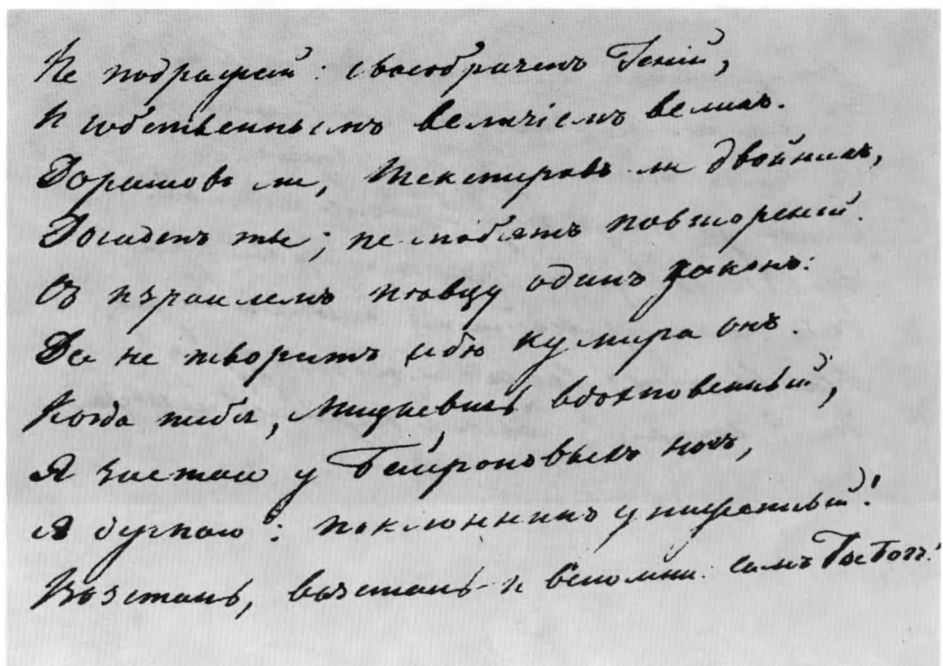 Не подражай: своеобразенъ Геній,
И собственнымъ величіемъ великъ.
Доратовъ ли, Шекспировъ ли двойникъ,
Досаденъ ты; не любятъ повтореній.
Съ Израилемъ пѣвцу одинъ законъ:
Да не творитъ себѣ кумира онъ.
Когда тебя, Мицкевичь вдохновенный,
Я застаю у Бейроновыхъ ногъ,
Я думаю: поклонникъ униженный!
Возстань, возстань и вспомни: самъ ты Богъ!